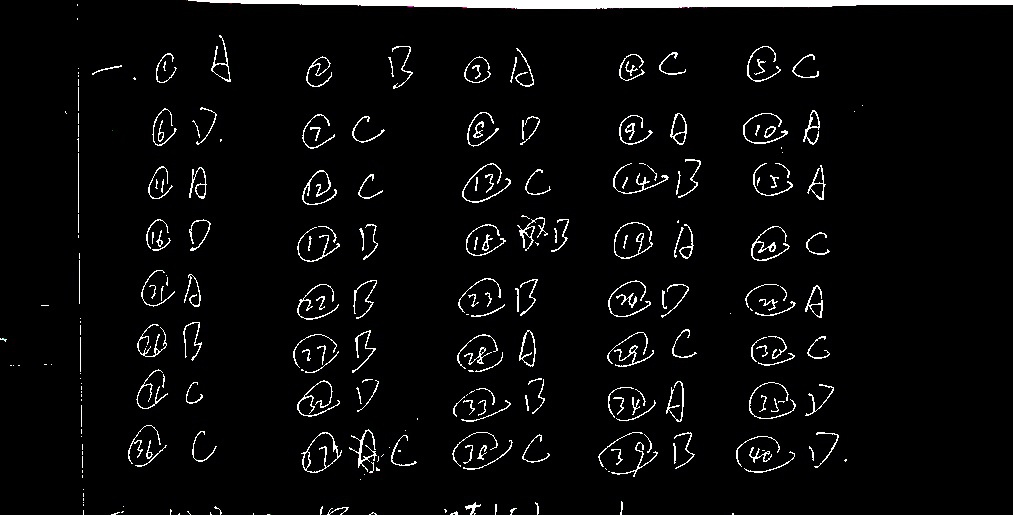 一. ① A ② B ③ A ④ C ⑤ C
⑥ D. ⑦ C ⑧ D ⑨ A ⑩ A
⑪ A ⑫ C ⑬ C ⑭ B ⑮ A
⑯ D ⑰ B ⑱ B ⑲ A ⑳ C
㉑ A ㉒ B ㉓ B ㉔ D ㉕ A
㉖ B ㉗ B ㉘ A ㉙ C ㉚ C
㉛ C ㉜ D ㉝ B ㉞ A ㉟ D
㊱ C ㊲ C ㊳ C ㊴ B ㊵ D.